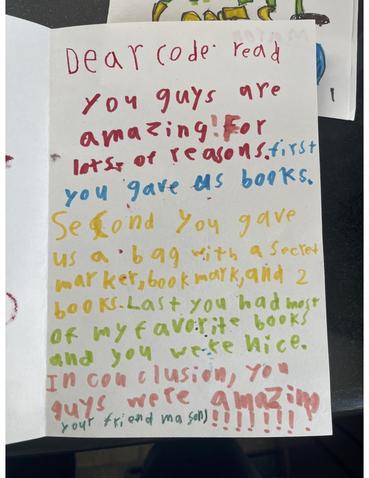 Dear code read
You guys are
amazing! For
lots of reasons. first
you gave us books.
Second you gave
us a bag with a secret
marker, bookmark, and 2
books. Last you had most
of my favorite books
and you were nice.
In con clusion, you
guys were amazing
your friend mason) !!!!!!!